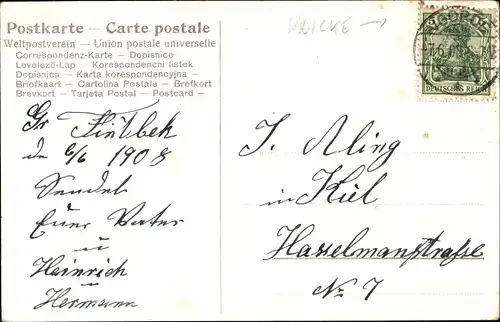 Postkarte — Carte postale
Weltpostverein — Union postale universelle
Correspondenz-Karte — Dopisnice
Levelező-Lap — Korespondencni listek
Dopisnica — Karta korespondencyjna —
Briefkaart — Cartolina Postale — Brefkort
Brevkort — Tarjeta Postal — Postcard —
Gr Flintbek
de 6/6 1908
Sendet
Euer Vater
u
Heinrich
Hermann
WICKE →
DEUTSCHES REICH
J. Aling
in Kiel
Hasselmanstrasse
No 7